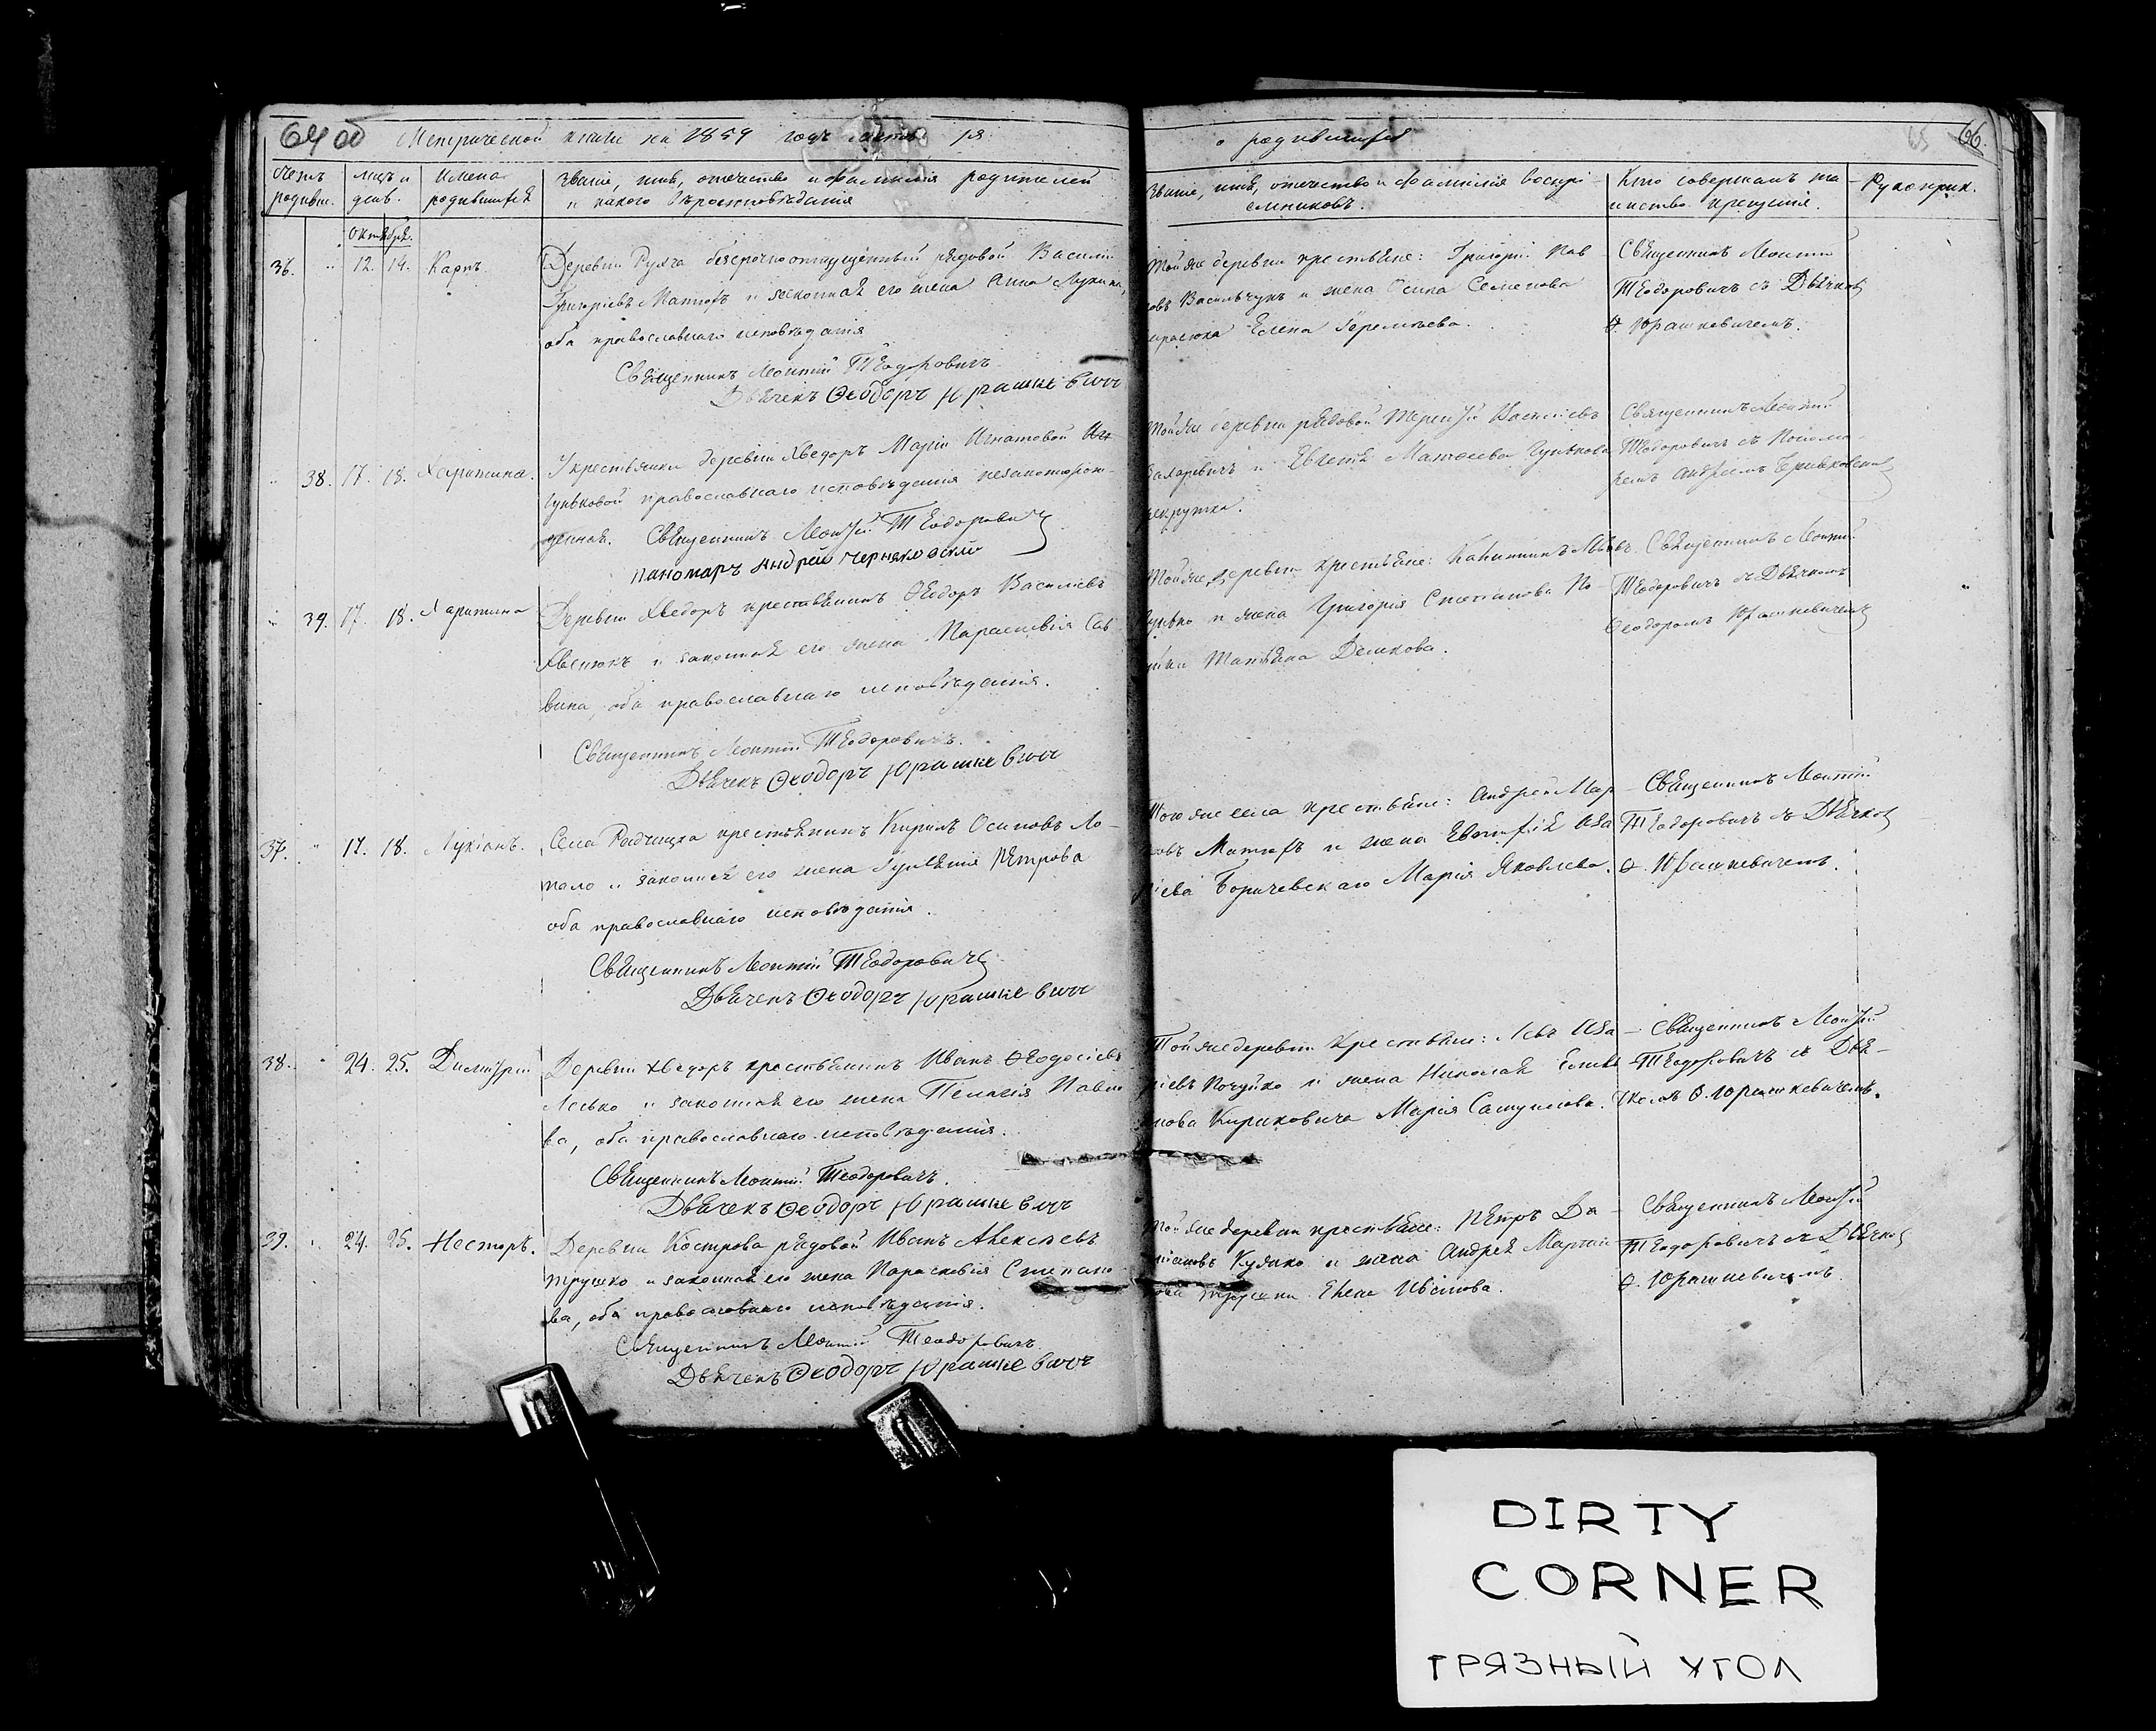 64 об Метрической книги на 1859 годъ часть 1я
о родившихся
65 66.
Счетъ родивш.
мцъ и день.
Имена родившихся
Званіе, имя, отечество и фамилія родителей
и какого вѣроисповѣданія
Званіе, имя, отечество и фамилія воспрі
емниковъ.
Кто совершалъ та
инство крещенія.
Рукоприк.
Октября.
36. 12. 14. Карпъ
Деревни безсрочноотпущенный рядовой Василій
Григорьевъ и законная его жена Анна
оба православнаго исповѣданія
Священникъ Леонтій Теодоровичъ
Дьячекъ Ѳеодоръ Юрашкевичъ
Той же деревни крестьяне: Григорій Пав
овъ Васильчукъ и жена Осипа Семенова
Елена
Священникъ Леонтій
Теодоровичъ съ Дьячком
Ѳ. Юрашкевичемъ.
38. 17. 18. Харитина.
У крестьянки деревни Хведоръ Маріи Игнатовой
православнаго исповѣданія незаконнорож-
денная. Священникъ Леонтій Теодоровичъ
пономаръ Андрей Черняковскій
Той же деревни рядовой Терентій Васильевъ
Захаревичъ и Матвеева
рекрутка.
Священникъ Леонтій
Теодоровичъ съ Понома-
ремъ Андреемъ
39. 17. 18. Харитина
Деревни Хведоръ крестьянинъ Ѳеодоръ Васильевъ
и законная его жена Параскевія Сав
вина, оба православнаго исповѣданія.
Священникъ Леонтій Теодоровичъ.
Дьячекъ Ѳеодоръ Юрашкевичъ
Той же деревни крестьяне:
и жена Григорія Степанова По-
Татьяна Демкова.
Священникъ Леонтій
Теодоровичъ съ Дьячкомъ
Ѳеодоромъ Юрашкевичемъ
37. 17. 18. Лукіанъ.
Села Радчицка крестьянинъ Кирилъ Осиповъ Ло-
и законная его жена Петрова
оба православнаго исповѣданія.
Священникъ Леонтій Теодоровичъ
Дьячекъ Ѳеодоръ Юрашкевичъ
Того же села крестьяне: Андрей Мар
овъ и жена Евстафія Аза
ріева Боричевскаго Марія Яковлева.
Священникъ Леонтій
Теодоровичъ съ Дьячком
Ѳ. Юрашкевичемъ.
38. 24. 25. Димитрій
Деревни Хведоръ крестьянинъ Иванъ Ѳеодосіевъ
Лесько и законная его жена Пелагія Павло
ва, оба православнаго исповѣданія.
Священникъ Леонтій Теодоровичъ.
Дьячекъ Ѳеодоръ Юрашкевичъ
Той же деревни Крестьяне: Левъ Аза
ріевъ и жена Николая
нова Кириковича Марія
Священникъ Леонтій
Теодоровичъ съ Дья-
чкомъ Ѳ. Юрашкевичемъ.
39. 24. 25. Несторъ.
Деревни Кострова рядовой Иванъ Алексѣевъ
Трушко и законная его жена Параскевія Степано
ва, оба православнаго исповѣданія.
Священникъ Леонтій Теодоровичъ
Дьячекъ Ѳеодоръ Юрашкевичъ
Той же деревни крестьяне: Петръ Да
и жена Андрея
Елена Иванова.
Священникъ Леонтій
Теодоровичъ съ Дьячком
Ѳ. Юрашкевичемъ.
DIRTY
CORNER
ГРЯЗНЫЙ УГОЛ